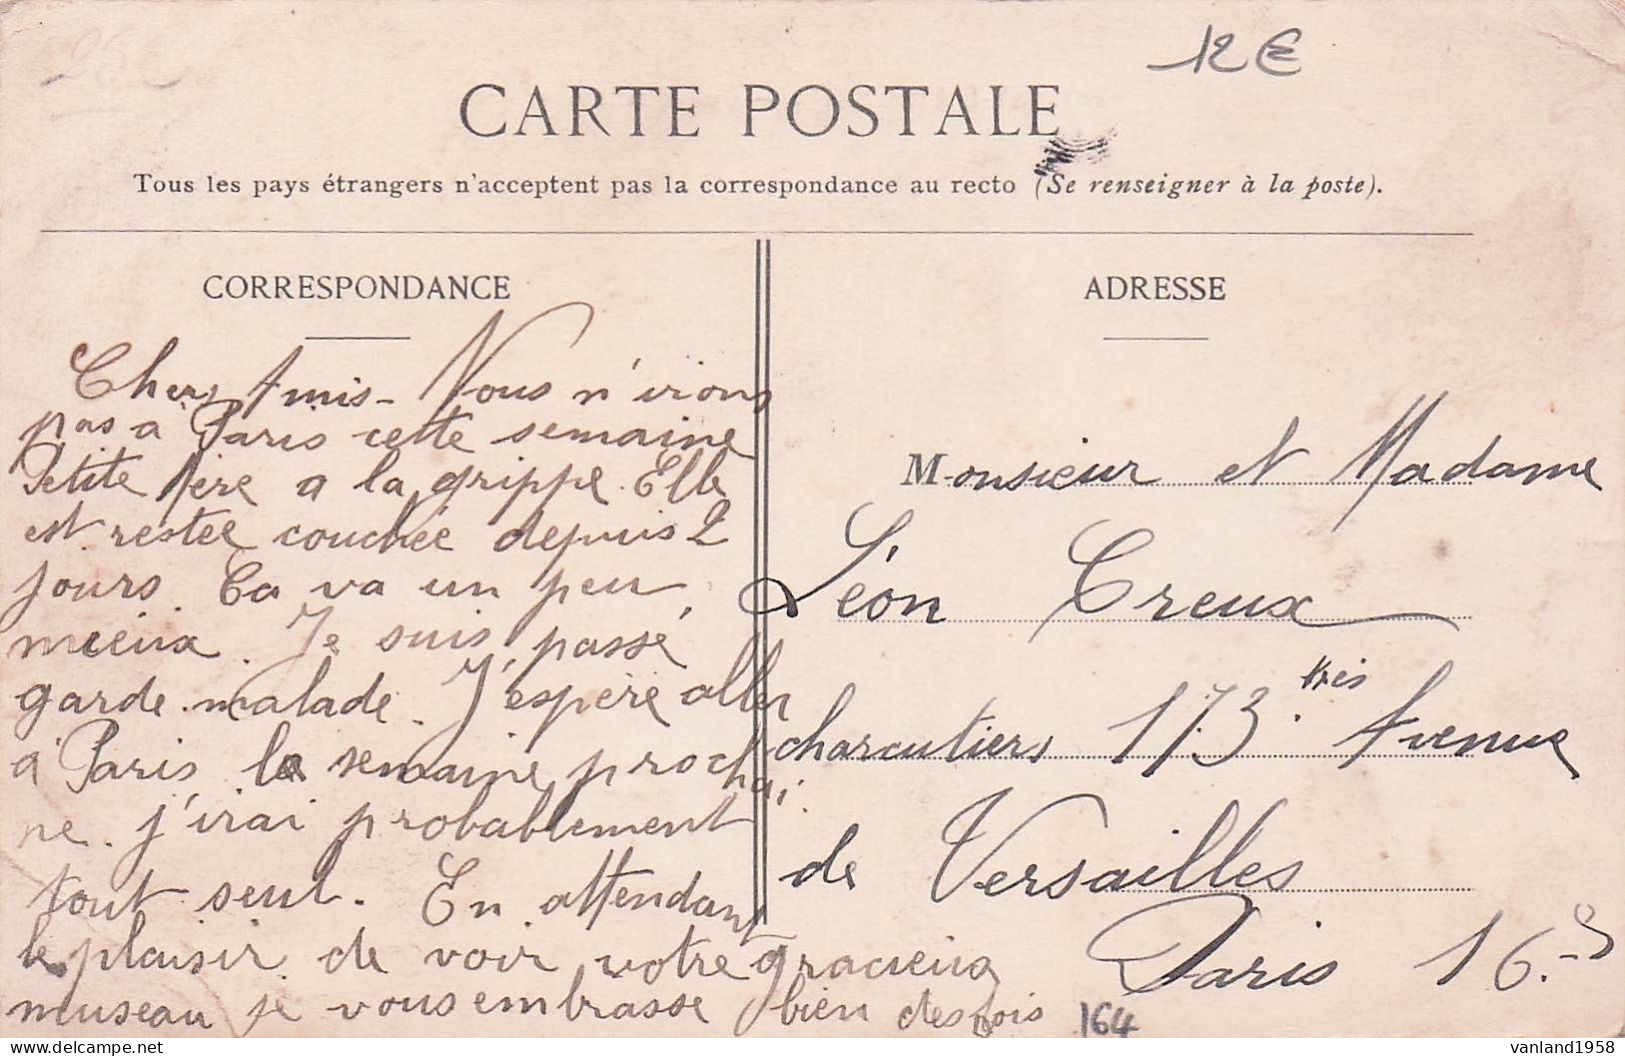 12 €
CARTE POSTALE
Tous les pays étrangers n'acceptent pas la correspondance au recto (Se renseigner à la poste).
CORRESPONDANCE
Chers Amis - Nous n'irons
pas a Paris cette semaine
Petite Mère a la grippe. Elle
est restée couchée depuis 2
jours. Ca va un peu
mieux. Je suis passé
garde malade. J'espère aller
à Paris la semaine prochai
ne. j'irai probablement
tout seul. En attendant
le plaisir de voir votre gracieux
museau je vous embrasse bien des fois
ADRESSE
Monsieur et Madame
Léon Creux
charcutiers 173 tris Avenue
de Versailles
Paris 16.e
164
vanland1958